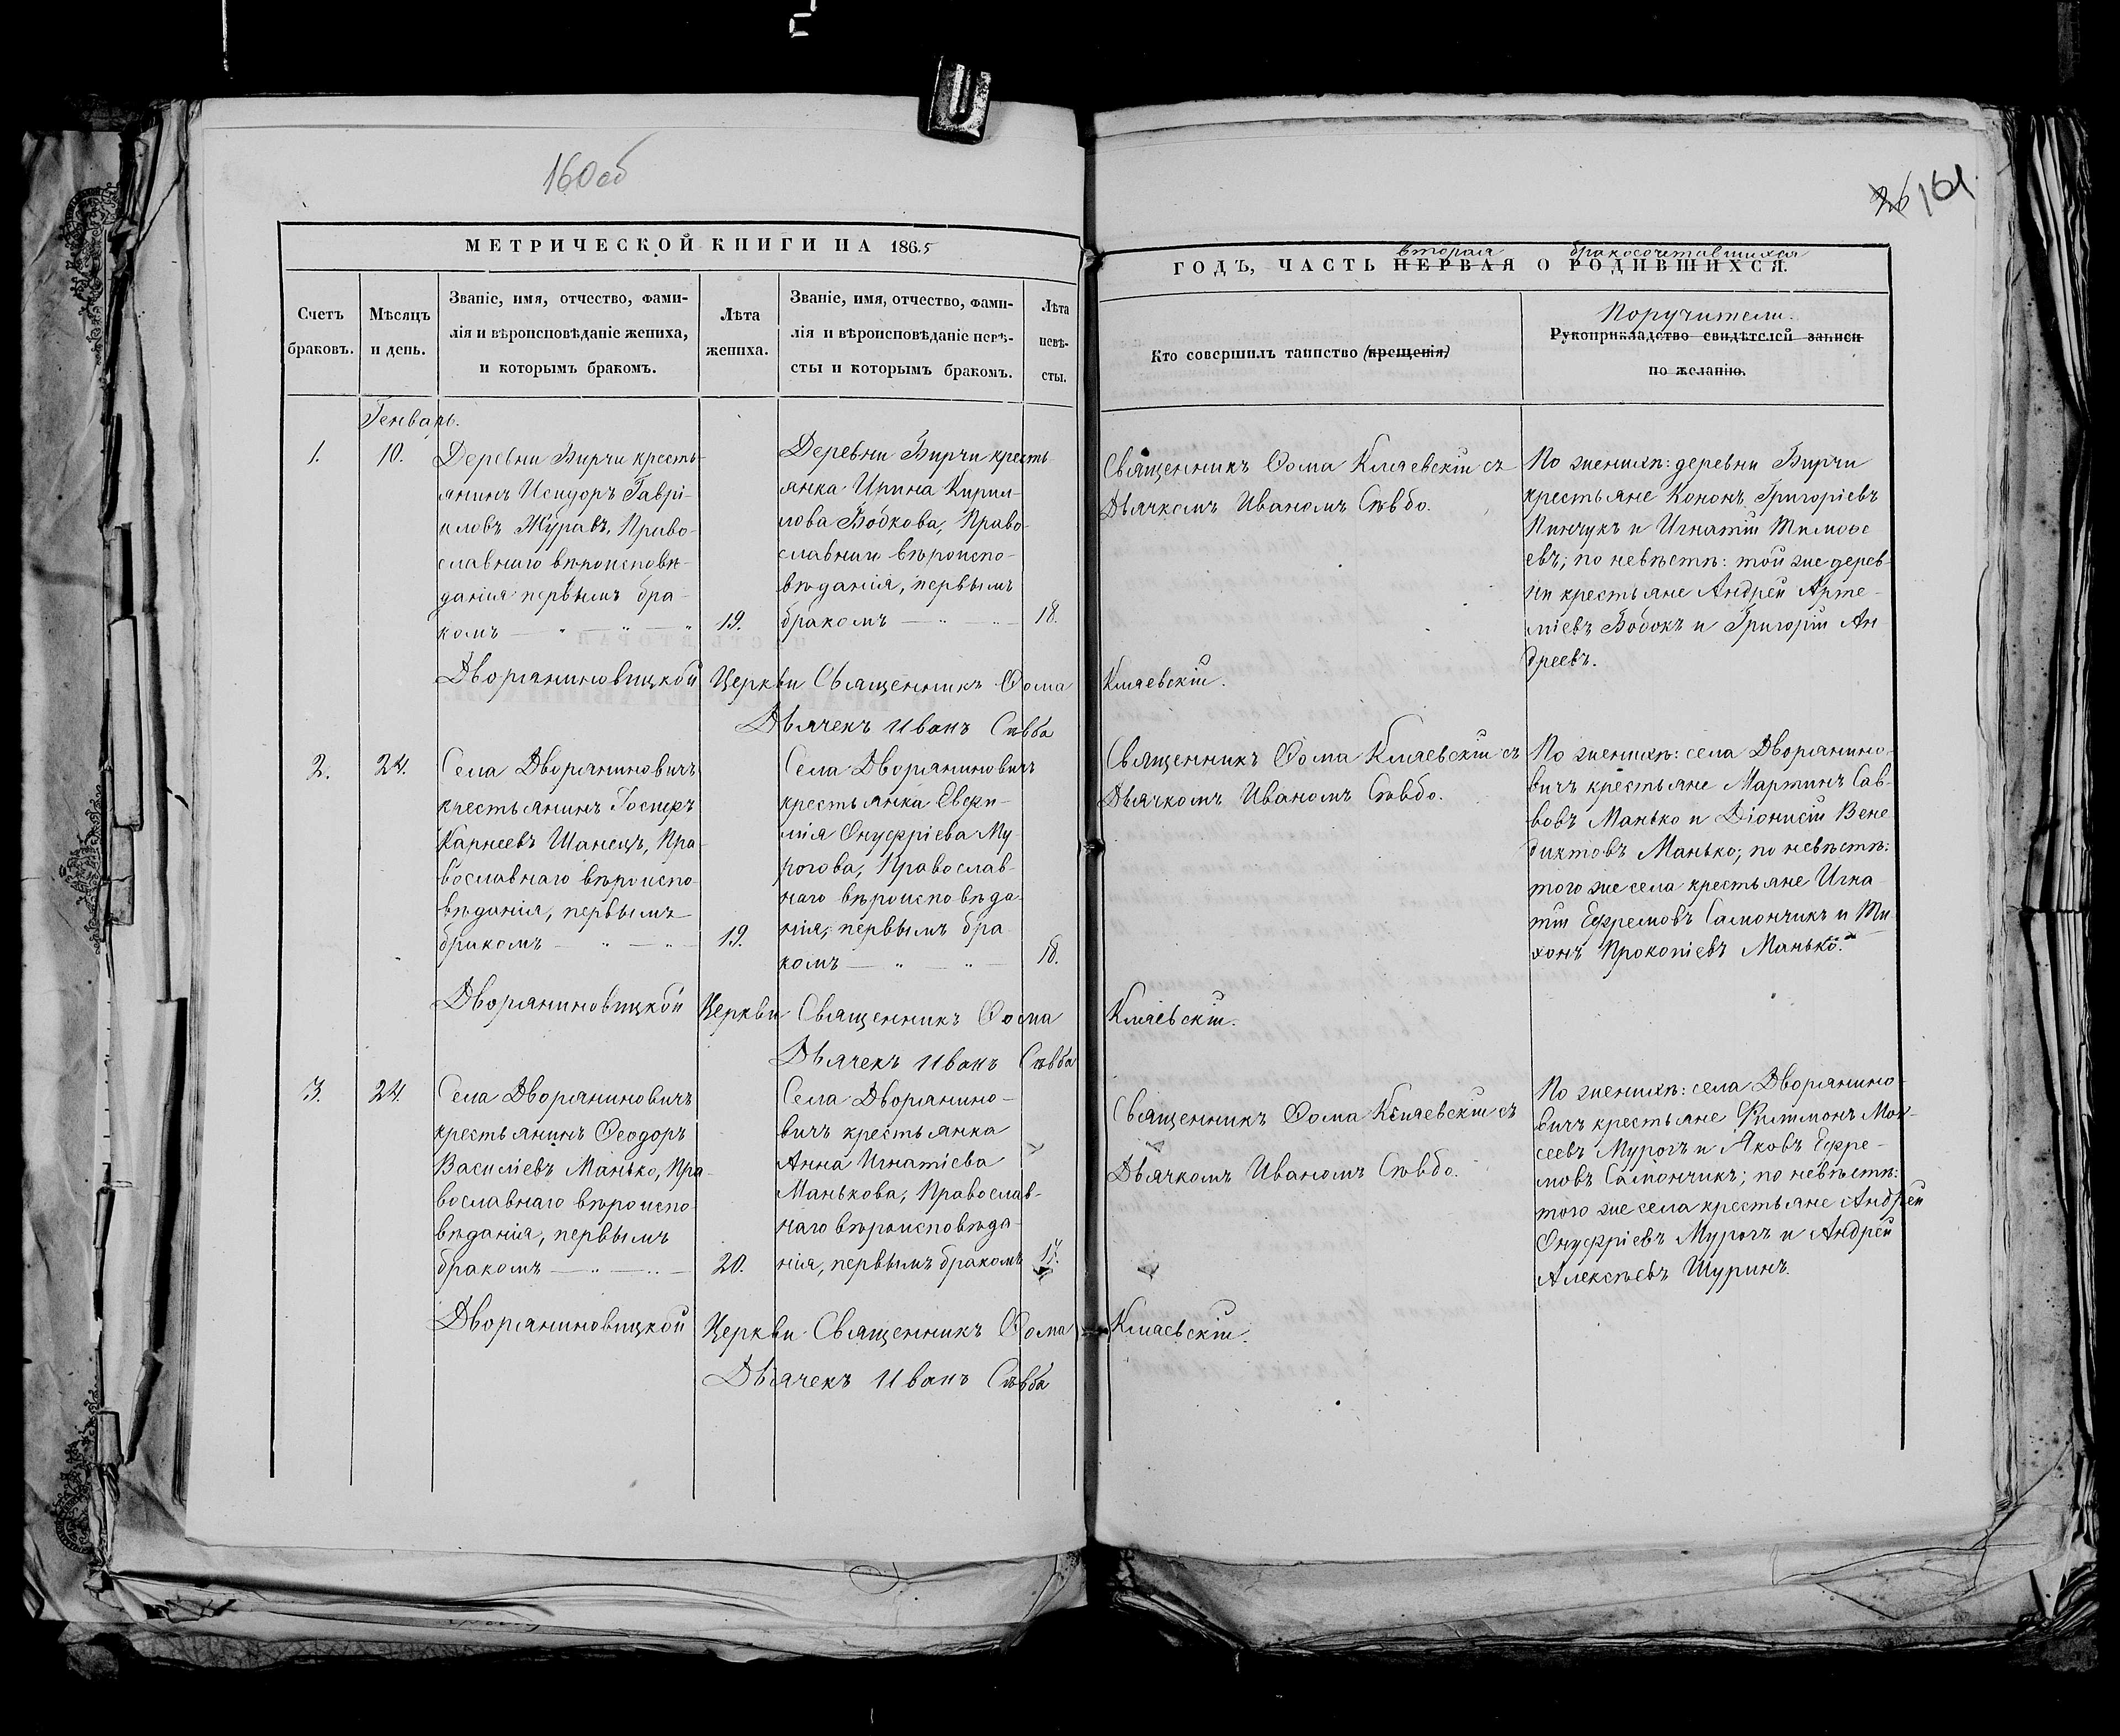 160об
26 161
МЕТРИЧЕСКОЙ КНИГИ НА 1865
Счетъ
браковъ.
Мѣсяцъ
и день.
Званіе, имя, отчество, фами-
лія и вѣроисповѣданіе жениха,
и которымъ бракомъ.
Лѣта
жениха.
Званіе, имя, отчество, фами-
лія и вѣроисповѣданіе невѣ-
сты и которымъ бракомъ.
Лѣта
невѣ-
сты.
Генварь.
1.
10.
Деревни Вирчи кресть-
янинъ Исидоръ Гаврі-
иловъ Журавъ, Право-
славнаго вѣроисповѣ-
данія первымъ бра-
комъ
19.
Деревни Вирчи кресть-
янка Ирина Кирил-
лова Бобкова, Право-
славнаго вѣроиспо-
вѣданія, первымъ
бракомъ
18.
Дворяниновицкой Церкви Священникъ Ѳома
Дьячекъ Иванъ Сѣвба
2.
24.
Села Дворяниновичъ
крестьянинъ Іосифъ
Карнеевъ Шанецъ, Пра-
вославнаго вѣроиспо-
вѣданія, первымъ
бракомъ
19.
Села Дворяниновичъ
крестьянка Евфи-
мія Онуфріева Му-
рогова, Православ-
наго вѣроисповѣда-
нія, первымъ бра-
комъ
18.
Дворяниновицкой Церкви Священникъ Ѳома
Дьячекъ Иванъ Сѣвба
3.
24.
Села Дворяниновичъ
крестьянинъ Ѳеодоръ
Василіевъ Манько, Пра-
вославнаго вѣроиспо-
вѣданія, первымъ
бракомъ
20.
Села Дворянино-
вичъ крестьянка
Анна Игнатіева
Манькова, Православ-
наго вѣроисповѣда-
нія, первымъ бракомъ
17.
Дворяниновицкой Церкви Священникъ Ѳома
Дьячекъ Иванъ Сѣвба
вторая бракосочетавшихся
ГОДЪ, ЧАСТЬ ПЕРВАЯ О РОДИВШИХСЯ.
Кто совершилъ таинство (крещенія)
Поручители.
Рукоприкладство свидѣтелей записи
по желанію.
Священникъ Ѳома Кміаевскій съ
Дьячкомъ Иваномъ Сѣвбо.
По женихѣ: деревни Вирчи
крестьяне Кононъ Григоріевъ
Пинчукъ и Игнатій Тимоѳе
евъ; по невѣстѣ: той же дерев-
ни крестьяне Андрей Арте-
міевъ Бобокъ и Григорій Ан
дреевъ.
Кміаевскій.
Священникъ Ѳома Кміаевскій съ
Дьячкомъ Иваномъ Сѣвбо.
По женихѣ: села Дворянино-
вичъ крестьяне Мартинъ Сав-
вовъ Манько и Діонисій Вене
диктовъ Манько; по невѣстѣ:
того же села крестьяне Игна
тій Ефремовъ Самончикъ и Ти-
хонъ Прокопіевъ Манько.
Кміаевскій.
Священникъ Ѳома Кміаевскій съ
Дьячкомъ Иваномъ Сѣвбо.
По женихѣ: села Дворянино-
вичъ крестьяне Филимонъ Мои-
сеевъ Мурогъ и Яковъ Ефре-
мовъ Самончикъ; по невѣстѣ:
того же села крестьяне Андрей
Онуфріевъ Мурогъ и Андрей
Алексѣевъ Шуринъ.
Кміаевскій.